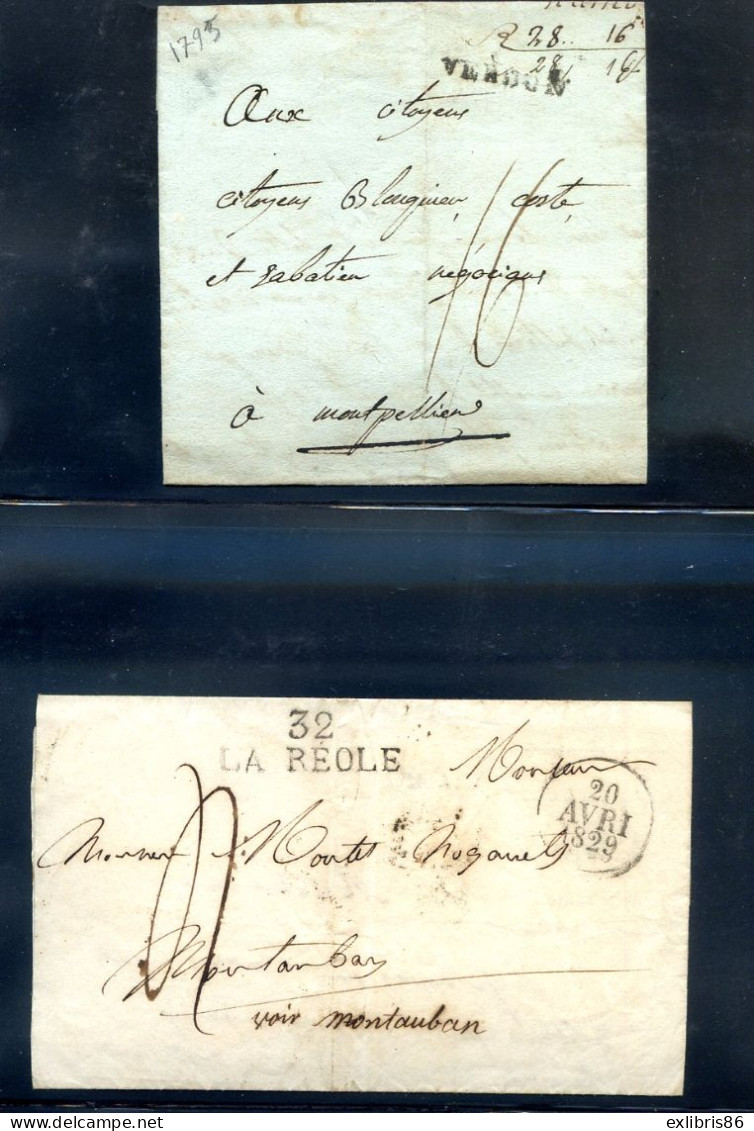 1795
R 28.. 16
28 16
VERDUN
Aux citoyens
citoyens Blouquier, coste,
et sabatier négocians
16
à montpellier
32
LA RÉOLE
Monsieur
20
AVRI
1829
Monsieur Montet Nogarets
Montauban
voir montauban
exlibris86